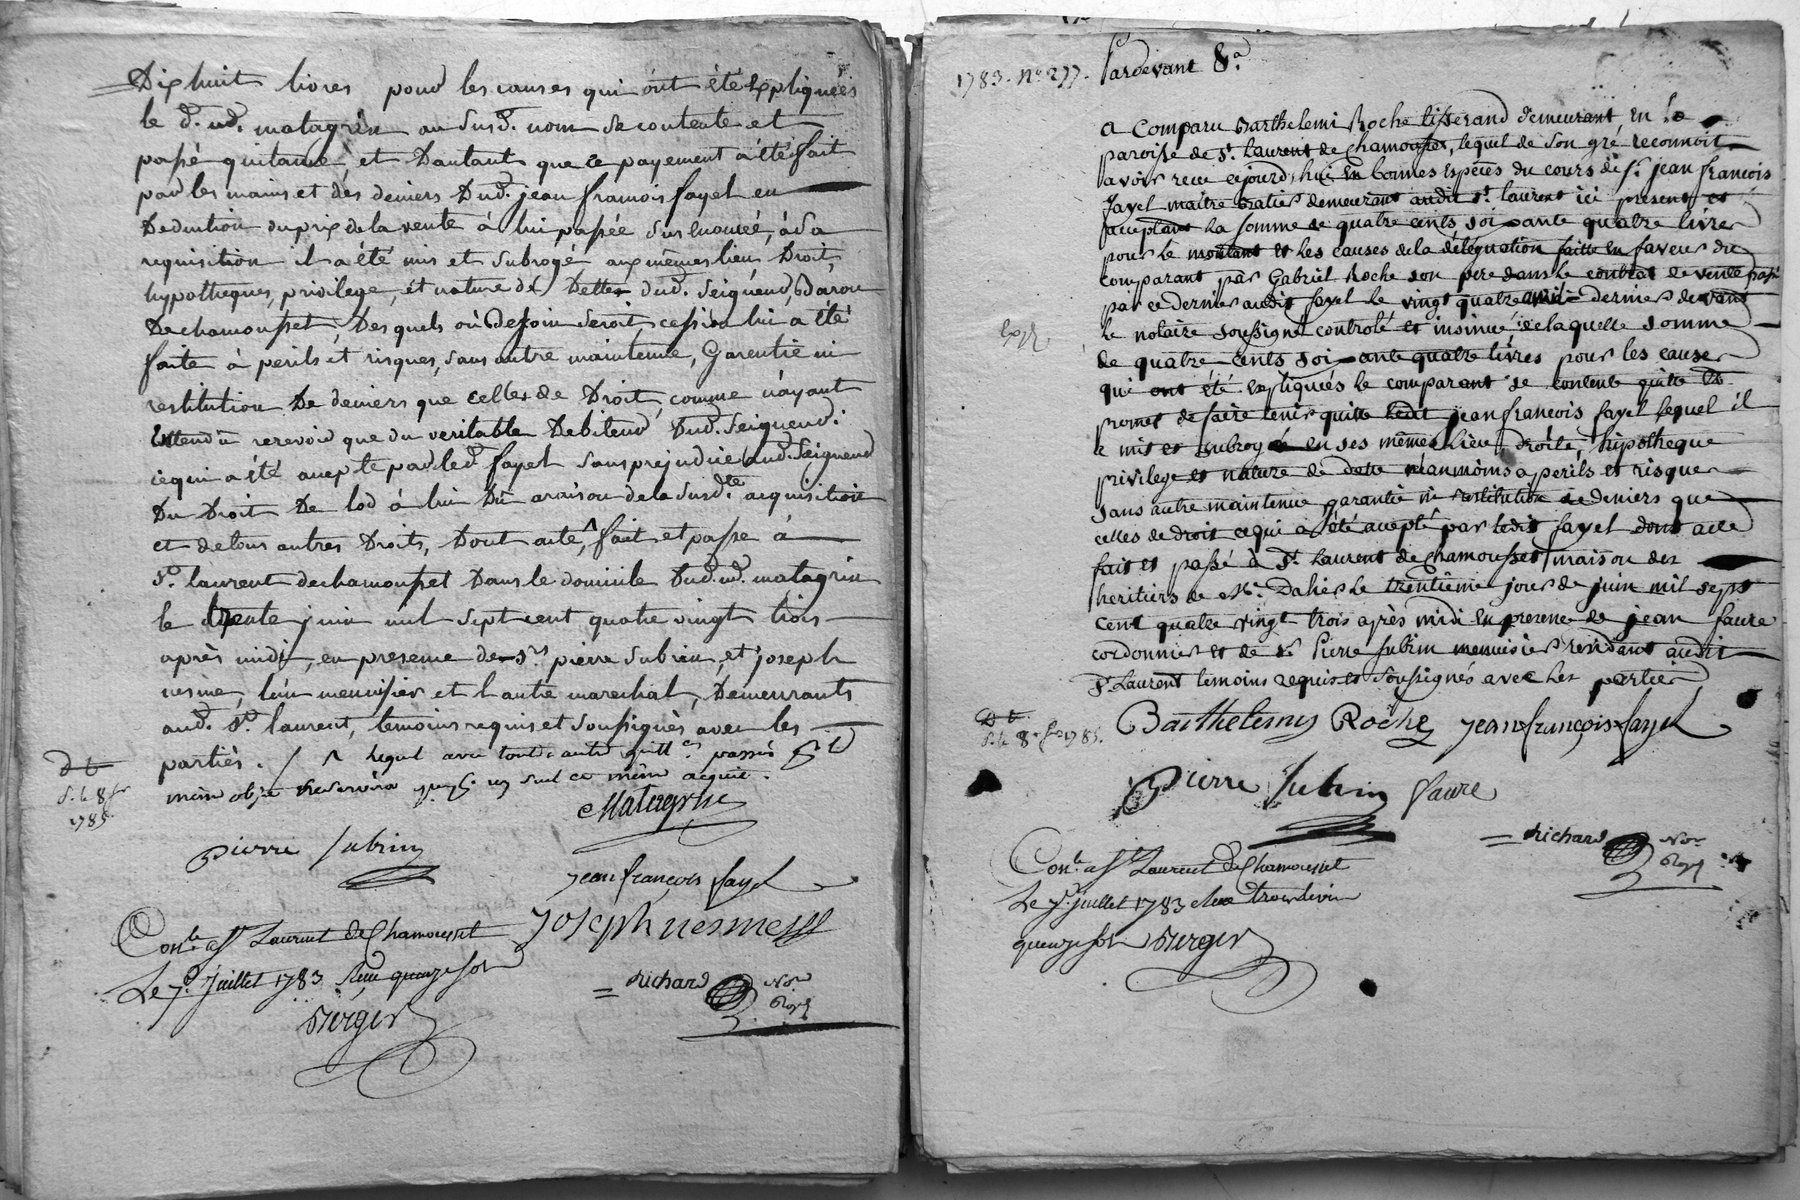 Dix huit livres pour les causes qui ont été expliquées
le d. sd. matagrin au susd. nom se contente et
passé quitance et Dautant que ce payement a été fait
par les mains et des deniers Dud. jean francois fayet en
Deduction du prix de la vente à lui passée sus énoncée, à sa
requisition il a été mis et subrogé aux mêmes lieu Droit,
hypotheques, privilege, et nature de Dettes dud. Seigneur Baron
De chamousset, Desquels où Besoin seroit cession lui a été
faite à perils et risques, sans autre maintenue, Garentie ni
restitution De deniers que celles de Droit, comme n'ayant
Entendû recevoir que du veritable Debiteur Dud. Seigneur.
ce qui a été accepté par led. fayet sans prejudice aud. Seigneur
Du Droit De lod à lui Dû a raison de la susdte. acquisition
et de tous autres Droits, Dont acte, ^ fait et passé à
St. laurent de chamousset Dans le domicile Dud. sd. matagrin
le trente juin mil sept cent quatre vingt trois
après midi, en presence de srs pierre subrin, et joseph
nesme, l'un menuisier et l'autre marechal, Demeurants
aud. St. laurent, temoins requis et soussignés avec les
parties. / ^ lequel avec toute autre quittces passés
même objet ne servira qu'un seul et même acquit.
D t
S. le 8
1785.
Matagrin
pierre subrin
jean françois fayet
joseph nesme
Conlé à St Laurent de Chamousset
Le 7e. Juillet 1783 Reçu quinze sols
Berger
= Richard Nore
Royl
1783. No 277. Pardevant &a.
a Comparu Barthelemi Roche tisserand demeurant en la
paroisse de St. Laurent de Chamousset, lequel de son gré reconnoit
avoir reçu cejourd'hui en bonnes especes du cours de sr. jean francois
fayet maitre demeurant audit st. laurent ici present et
acceptant la somme de quatre cents soixante quatre livres
pour le montant et les causes de la délégation faitte en faveur du
comparant par Gabriel Roche son pere dans le contrat de vente passé
par ce dernier audit fayet le vingt quatre avril dernier devant
le notaire soussigné controlé et insinué de laquelle somme
de quatre cents soixante quatre livres pour les causes
qui ont été expliquées le comparant se contente quitte et
promet de faire tenir quitte ledit jean francois fayet lequel il
a mis et subrogé en ses mêmes lieu droits, hipotheque
privilege et nature de dette néanmoins a perils et risques
sans autre maintenue garantie ni restitution de deniers que
celles de droit ce qui a été accepté par ledit fayet dont acte
fait et passé à St. Laurent de Chamousset maison des
heritiers de Mr. Dalier le trentieme jour de juin mil sept
cent quatre vingt trois après midi en presence de jean faure
cordonnier et de sr. Pierre subrin menuisier residant audit
St Laurent temoins requis et soussignés avec les parties
D t
S. le 8 1785.
Barthelemy Roche jean françois fayet
pierre subrin faure
= Richard Nore
Royl
Conlé à St Laurent de Chamousset
Le 7e. juillet 1783 Reçu trois livres
quinze sols Berger